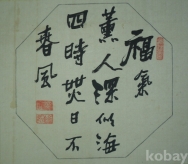 福氣
薰人深似海
四時無日不
春風
kobay